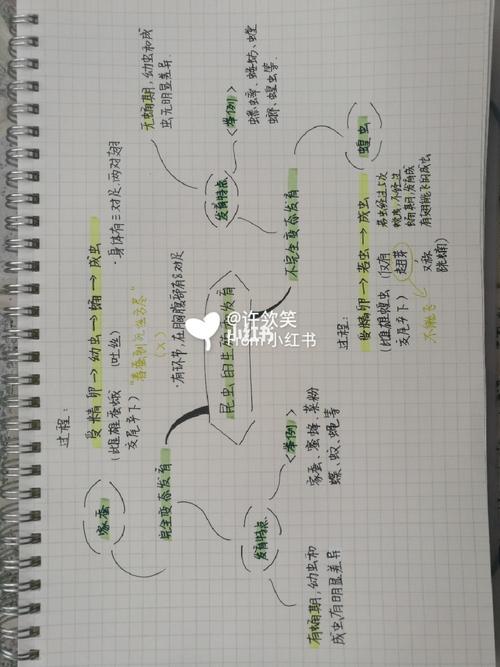 昆虫的生殖和发育
完全变态发育
家蚕
过程:
受精卵→幼虫→蛹→成虫
(雌雄蚕蛾
交尾产下)
(吐丝)
"春蚕到死丝方尽"
(×)
·有环节,在胸腹部有8对足
·身体有三对足、两对翅
发育特点
有蛹期,幼虫和
成虫有明显差异
<举例>
家蚕、蜜蜂、菜粉
蝶、蚊、蝇等
不完全变态发育
发育特点
无蛹期,幼虫和成
虫无明显差异
<举例>
蟋蟀、蝼蛄、螳
螂、蝗虫等
蝗虫
过程:
受精卵→若虫→成虫
(雌雄蝗虫
交尾产下)
(仅有
翅芽
又称
跳蝻)
不能飞
若虫经过5次
蜕皮,不经过
蛹期,发育成
有翅能飞的成虫
@许欸笑
小红书
From 小红书